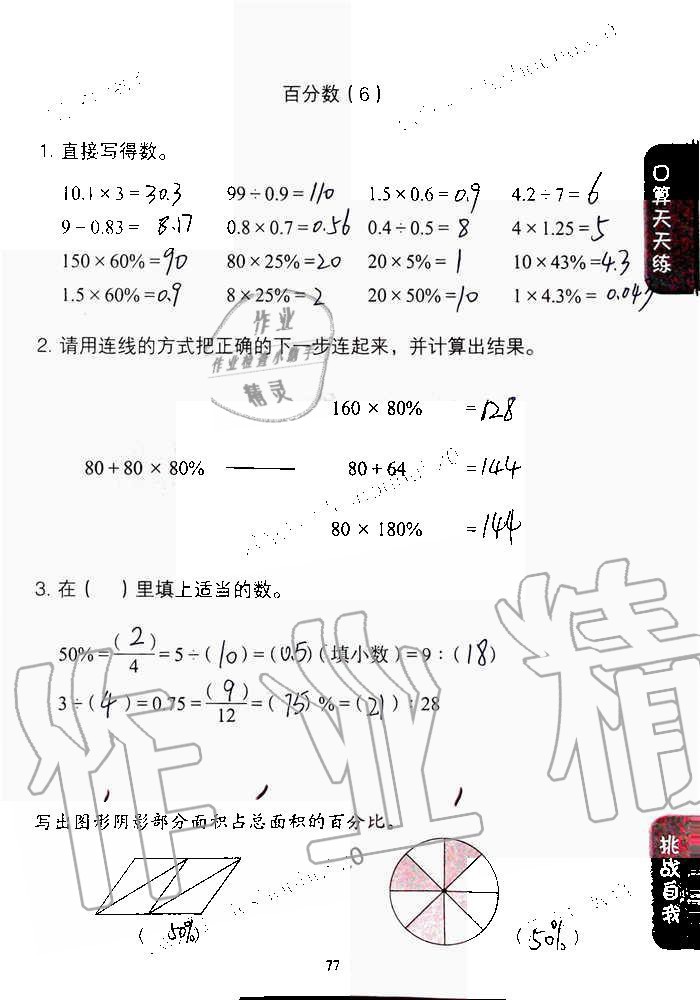 百分数(6)
1. 直接写得数。
10.1 × 3 = 30.3 99 ÷ 0.9 = 110 1.5 × 0.6 = 0.9 4.2 ÷ 7 = 6
9 - 0.83 = 8.17 0.8 × 0.7 = 0.56 0.4 ÷ 0.5 = 8 4 × 1.25 = 5
150 × 60% = 90 80 × 25% = 20 20 × 5% = 1 10 × 43% = 4.3
1.5 × 60% = 0.9 8 × 25% = 2 20 × 50% = 10 1 × 4.3% = 0.043
口算天天练
作业
作业检查小助手
精灵
2. 请用连线的方式把正确的下一步连起来，并计算出结果。
160 × 80% = 128
80 + 80 × 80% 80 + 64 = 144
80 × 180% = 144
3. 在( )里填上适当的数。
50% = (2)/4 = 5 ÷ (10) = (0.5)(填小数) = 9 : (18)
3 ÷ (4) = 0.75 = (9)/12 = (75)% = (21) : 28
作业精
写出图形阴影部分面积占总面积的百分比。
挑战自我
(50%) (50%)
77